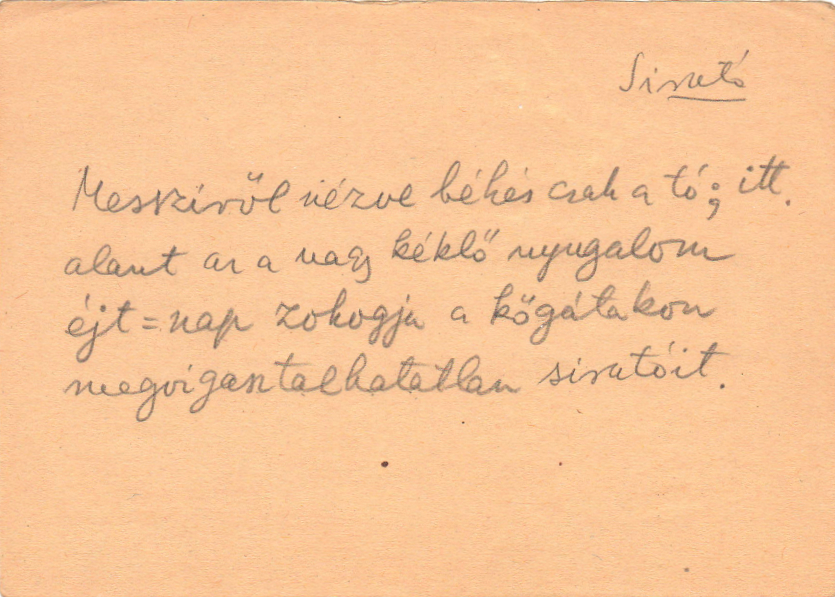 Sirató
Messziről nézve békés csak a tó; itt.
alant az a nagy kéklő nyugalom
éjt=nap zokogja a kőgátakon
megvigasztalhatatlan siratóit.